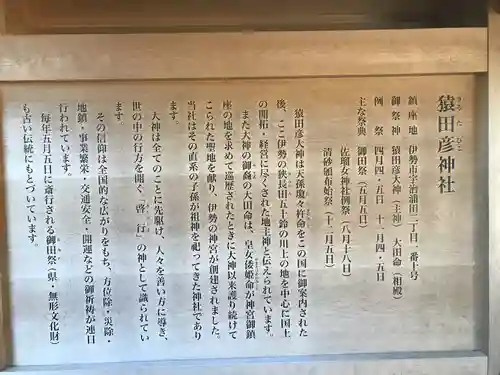 猿田彦神社
さるたひこ
鎮座地 伊勢市宇治浦田二丁目一番十号
御祭神 猿田彦大神(主神) 大田命(相殿)
例祭 四月四・五日 十月四・五日
主な祭典 御田祭(五月五日)
佐瑠女神社例祭(八月十八日)
清砂頒布始祭(十二月五日)
猿田彦大神は天孫瓊々杵命をこの国に御案内された
後、ここ伊勢の狭長田五十鈴の川上の地を中心に国土
の開拓・経営に尽くされた地主神と伝えられています。
また大神の御裔の大田命は、皇女倭姫命が神宮御鎮
座の地を求めて巡歴されたときに大神以来護り続けて
こられた聖地を献り、伊勢の神宮が創建されました。
当社はその直系の子孫が祖神を祀ってきた神社であり
ます。
大神は全てのことに先駆け、人々を善い方に導き、
世の中の行方を開く“啓行”の神として識られてい
ます。
その信仰は全国的な広がりをもち、方位除・災除・
地鎮・事業繁栄・交通安全・開運などの御祈祷が連日
行われています。
毎年五月五日に斎行される御田祭(県・無形文化財)
も古い伝統にもとづいています。